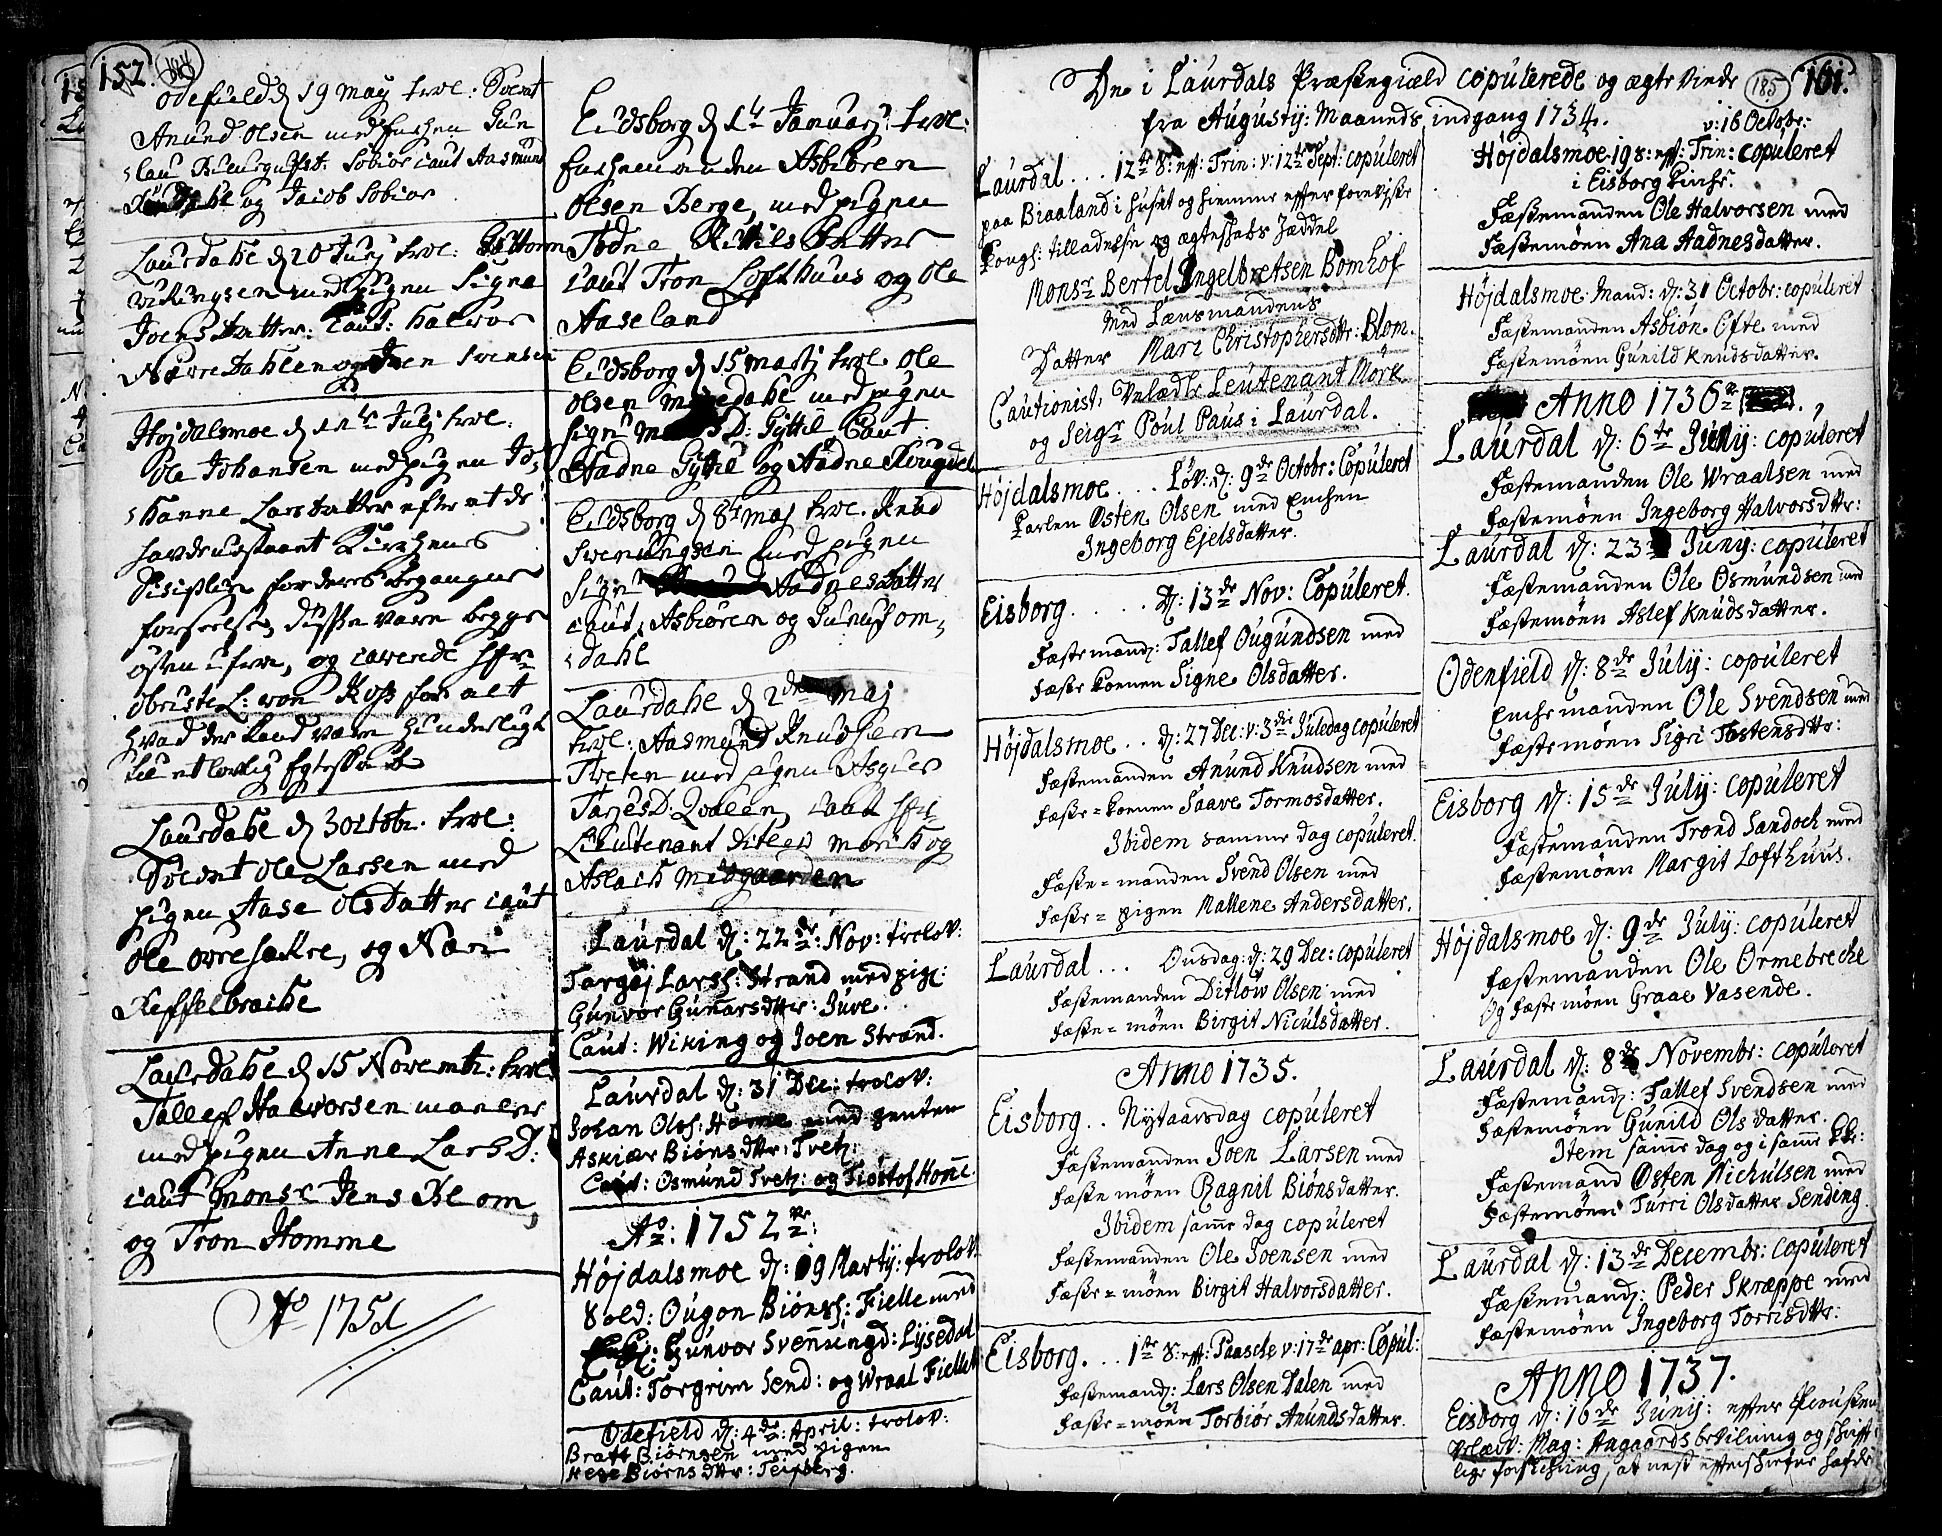 152 184
Odefield d 19 May trol: Soldat
Anund Olsen med
Caut Aasmund
og Jacob Sobior
Laurdahl d 20 Julj trol: Guttorm
Vikingsen med pigen Signe
Joens Datter: Caut: Halvor
Nørre Dahlen og Joen Svensen
Højdalsmoe d Julj trol:
Ole Johansen med pigen Jo-
hanne Larsdatter efter at de
havde udstaaet Kirchens
Disciplin for deres begangne
forseelse, disse vare begge
østen fra, og caverede Hr
Obriste L: von for alt
hvad der kand være hinderligt
til et lovlig Egteskab
Laurdahl d 3 octobr. trol:
Soldat Ole Larsen med
pigen Aase Olsdatter caut
Ole og Neri
Keffelbrache
Laurdahl d 15 Novembr: trol:
Tallef Halvorsen
med pigen Anne Lars D:
caut mons: Jens Blom
og Tron Homme
Ao 1751
Eidsborg d 1te Januarj: trol:
Asbiøren
Olsen Berge, med pigen
Todne Kittils Datter
caut Tron Lofthuus og Ole
Aaseland
Eidsborg d 15 martj trol. Ole
Olsen med pigen
Sign D: Gyttil Caut
Aadne Gyttil og Aadne
Eidsborg d 8 maj trol. Knud
Svenungsen med pigen
Sign Aadnesdatter
caut, Asbiøren og
dahl
Laurdahl d 2den maj
trol: Aasmund Knudsen
Tveten med pigen
Tarjes D. caut Hr
Lieutenant Ditlew Morch og
Aslach Midgaarden
Laurdal d: 22de: Nov: trolov:
Targøj Larss: Strand med pig:
Gunvor Gunarsdttr: Juve.
Caut: Wiking og Joen Strand.
Laurdal d: 31 Dec: trolov:
Johan Olss: Home med jenten
Askiær Biørnsdttr: Tvet:
Caut: Osmund Tvet: og Tiøstof Home.
Ao: 1752
Højdalsmoe d: 19 Martij: trolov.
Sold: Ougon Biønss: Fielle med
Gunvor Svennungd: Lysedal
Caut: Torgrim Send: og Wraal Fielle
Odefield d: 4de: April: trolov:
Bratt Biørnsen med pigen
Hege Biørns dttr: Teisberg.
De i Laurdals Præstegiæld copulerede og ægte viede 185 161.
fra Augustij: Maaneds indgang 1734.
Laurdal... 12te S: eft: Trin: v: 12te Sept: copuleret
paa Biaaland i huset og hiemme efter foreviiste
Kongl: tilladelse og ægteskabs Zeddel
Monsr Bertel Ingelbretsen Bomhof
Med Lænsmandens
Datter Mari Christophersdttr: Blom.
Cautionist, Velædle Leutenant Mörk
og Seigr Poul Paus i Laurdal.
Højdalsmoe.... Løv: d: 9de Octobr: Copuleret
Karlen Østen Olsen med Enchen
Ingeborg Ejelsdatter.
Eisborg...... d: 13de Nov: Copuleret.
Fæstemand: Tallef Ougundsen med
Fæste konen Signe Olsdatter.
Højdalsmoe.. d: 27 Dec: v: 3die Juledag copuleret
Fæstemanden Anund Knudsen med
Fæste-konen Saave Tormosdatter.
Ibidem samme dag copuleret.
Fæste-manden Svend Olsen med
Fæste-pigen Mallene Andersdatter.
Laurdal... Onsdag: d: 29 Dec: copuleret
Fæstemanden Ditlow Olsen med
Fæste-møen Birgit Niculsdatter.
Anno 1735.
Eisborg.. Nytaarsdag copuleret
Fæstemanden Joen Larsen med
Fæstemøen Ragnil Biønsdatter.
Ibidem same dag copuleret
Fæstemanden Ole Joensen med
Fæste-møen Birgit Halvorsdatter.
Eisborg... 1te S: eft: Paasche v: 17de apr: Copul:
Fæstemand: Lars Olsen Dalen med
Fæste-møen Torbiør Anundsdatter.
v: 16 Octobr:
Højdalsmoe. 19 S: eft: Trin: copuleret
i Eisborg Kirche.
Fæstemanden Ole Halvorsen med
Fæstemøen Ana Aadnesdatter.
Højdalsmoe. Mand: d: 31 Octobr: copuleret
Fæstemanden Asbiøn Ofte med
Fæstemøen Gunild Knudsdatter.
Anno 1736
Laurdal d: 6te Junij: copuleret
Fæstemanden Ole Wraalsen med
Fæstemøen Ingeborg Halvorsdttr:
Laurdal d: 23 Junij: copuleret
Fæstemanden Ole Osmundsen med
Fæstemøen Aslef Knudsdatter.
Odenfield d: 8de Julij: copuleret
Enchemanden Ole Svendsen med
Fæstemøen Sigri Tostensdttr:
Eisborg d: 15de Julij: copuleret
Fæstemanden Trond Sandoch med
Fæstemøen Margit Lofthuus.
Højdalsmoe d: 9de Julij: copuleret
Fæstemanden Ole Ormebreche
Og Fæstemøen Graae Vasende.
Laurdal d: 8de Novembr: copuleret
Fæstemand: Tallef Svendsen med
Fæstemøen Gunild Olsdatter.
Item same dag og i same Kk:
Fæstemand Østen Nichulsen med
Fæstemøen Turri Olsdatter Sending.
Laurdal d: 13de Decembr: copuleret
Fæstemand: Peder Skræppe med
Fæstemøen Ingeborg Torrisdttr:
Anno 1737.
Eisborg d: 16de Junij: efter Provsten
Velærv: Mag: Aagaards bevilning og skrift-
lige